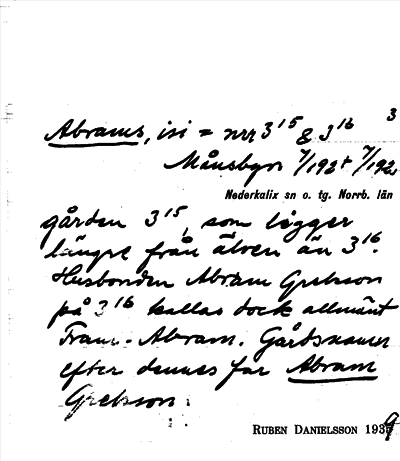 3
Abrams, isi = nrr 3¹⁵ & 3¹⁶
Månsbyn
Nederkalix sn o. tg. Norrb. län
gården 3¹⁵, som ligger
längre från älven än 3¹⁶.
Husbonden Abram Grelsson
på 3¹⁶ kallas dock allmänt
Fram-Abram. Gårdsnamn
efter dennes far Abram
Grelsson.
RUBEN DANIELSSON 1939